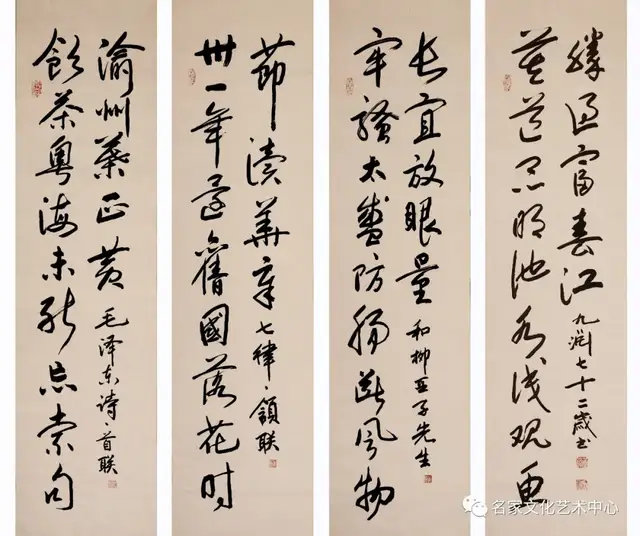 飲茶粤海未能忘索句
渝州葉正黄
毛泽东诗·首联
卅一年還舊國落花时
節讀華章
七律·領联
牢骚太盛防肠断风物
长宜放眼量
和柳亚子先生
莫道昆明池水浅观鱼
勝過富春江
九渊七十二歲书
名家文化艺术中心